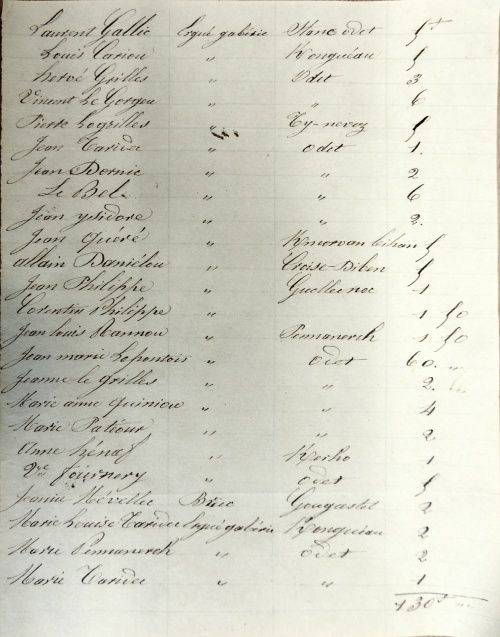 Laurent Gallic Ergué gabéric Stanc odet 5 f
Louis Cariou " Konguéau 5
Hervé Grilles " Odet 3
Vincent Le Gorgeu " " 6
Pierre Logrilles " Ty-nevez 5
Jean Taridec " Odet 1.
Jean Bernic " " 2
Le Bel " " 6
Jean ysidore " " 2.
Jean Quéré " Kmorvan bihan 5
allain Daniélou " Croise-Diben 5
Jean Philippe " Guellenoc 1
Corentin Philippe " 1 50
Jean louis Hannou " Pennanerch 1 50
Jean marie Lepontois " Odet 60. "
Jeanne le grilles " " 2.
Marie anne Quiniou " " 4
Marie Patéour " " 2
Anne hénaf " Kerho 1
Vve Journery " odet 5
Jeanne Névellec Briec Gougastel 2
Marie Louise Taridec Ergué gabéric Konguéau 2
Marie Pennanerch " Odet 2
Marie Taridec " " 1
130 f "